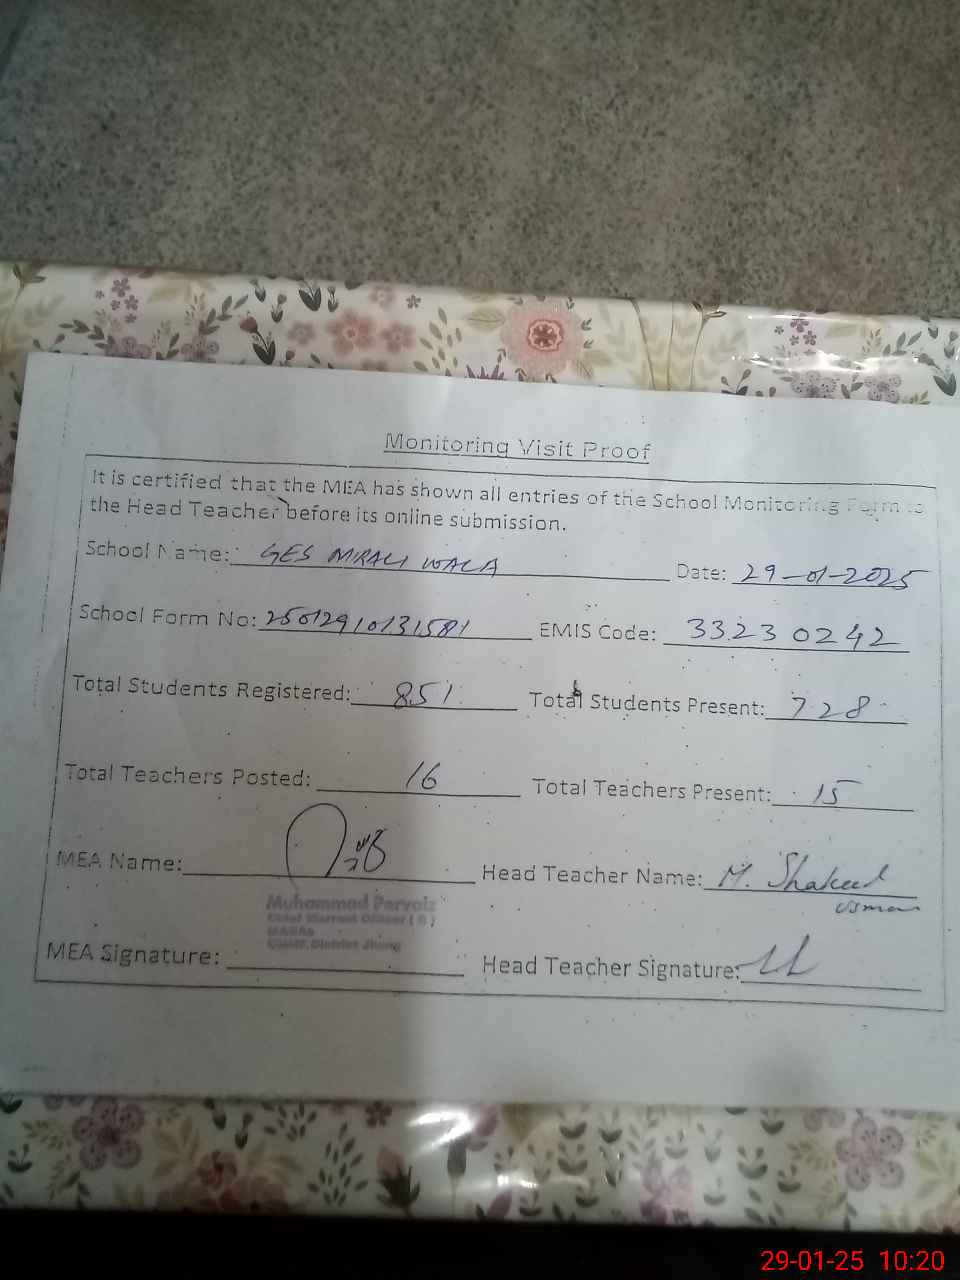 Monitoring Visit Proof
It is certified that the MEA has shown all entries of the School Monitoring Form to
the Head Teacher before its online submission.
School Name: GES MIRALI WALA Date: 29-01-2025
School Form No: 25012910131581 EMIS Code: 33230242
Total Students Registered: 851 Total Students Present: 728
Total Teachers Posted: 16 Total Teachers Present: 15
MEA Name: Head Teacher Name: M. Shakeel
Usman
Muhammad Parvaiz
Chief Warrant Officer ( R )
District Jhang
MEA Signature: Head Teacher Signature:
29-01-25 10:20